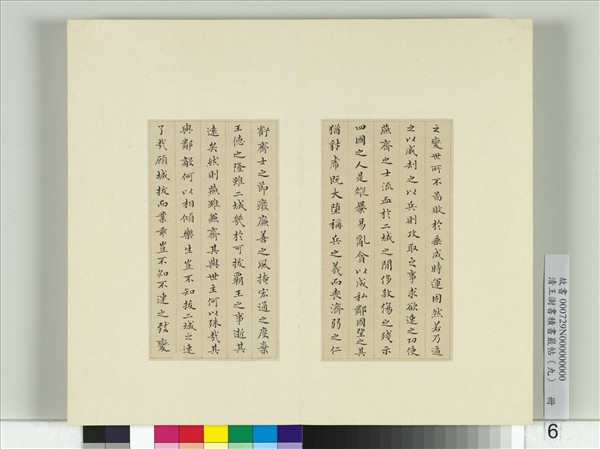 之變世所不圖敗於垂成時運固然若乃逼
之以威劫之以兵則攻取之事求欲速之功使
燕齊之士流血於二城之間侈殺傷之殘示
四國之人是縱暴易亂貪以成私鄰國望之其
猶豺虎既大墮稱兵之義而喪濟弱之仁
虧齊士之節廢廉善之風掩宏通之度棄
王德之隆雖二城幾於可拔霸王之事逝其
遠矣然則燕雖兼齊其與世主何以殊哉其
與鄰敵何以相傾樂生豈不知拔二城之速
了哉顧城拔而業乖豈不知不速之致變
故書 000729N000000000
清王澍書積書巖帖(九) 冊
6